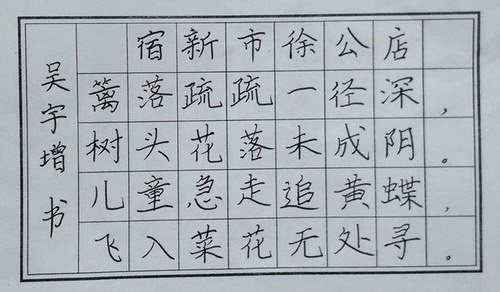 宿新市徐公店
篱落疏疏一径深，
树头花落未成阴。
儿童急走追黄蝶，
飞入菜花无处寻。
吴宇增 书